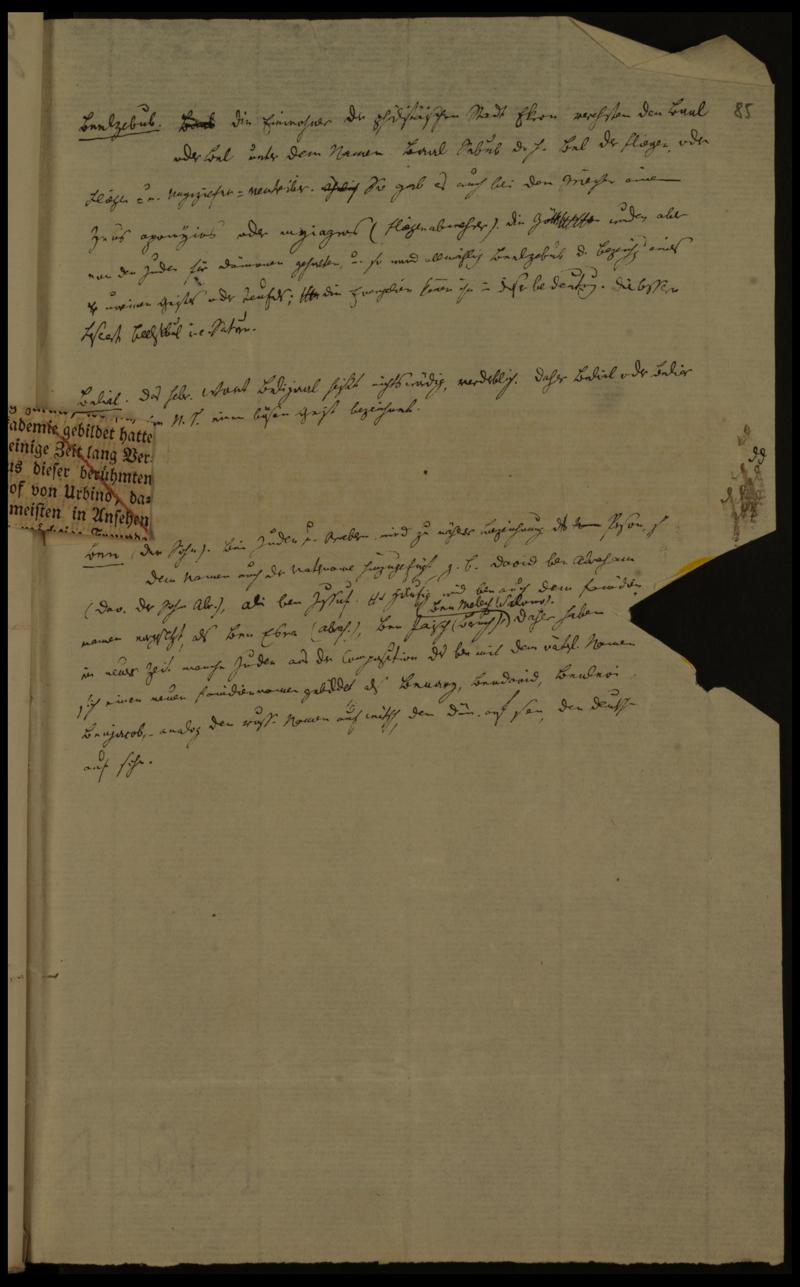 85
Beelzebub. die Einwohner der philistäischen Stadt Ekron verehrten den Baal
oder Bel unter dem Namen Baal Sebub d. h. Bel der Fliegen, oder
Fliegen= u. Ungeziefer=vertreiber. So gab es auch bei den Griechen einen
Zeus apomyios oder myiagros (Fliegenabwehrer). die wurden aber
von den Juden für Dämonen gehalten, u. so ward allmählich Beelzebub d. eines
unreinen Geistes oder Teufels; die Evangelien ihn in dieser Bedeutung. die bessere
Lesart Beelzebul
Belial. Das hebr. Wort Belijaal heißt nichtswürdig, verderblich. daher Belial oder Beliar
im N. T. einen bösen Geist bezeichnet.
ademie gebildet hatte
einige Zeit lang Ver-
us dieser berühmten
of von Urbino, da-
meisten in Ansehen
Ben (der Sohn). Bei Juden u. Arabern wird zu näherer Bezeichnung der Person
dem Namen auch der Vatername hinzugefügt z. B. David ben Abraham
(Dav. der Sohn Abr.), Ali ben Jussuf. Häufig wird ben auch dem Familien
Ben Melech (Salomo)
namen vorgesetzt, als Ben Esra (Abrah.), Ben Daher haben
in neuer Zeit manche Juden aus der Composition des ben mit dem väterl. Namen
sich einen neuen Familiennamen gebildet als Benary, Bendavid, Benlevi,
Benjacob, analog den russ. Namen auf witsch, den dän. auf sen, den deutsch
auf sohn.